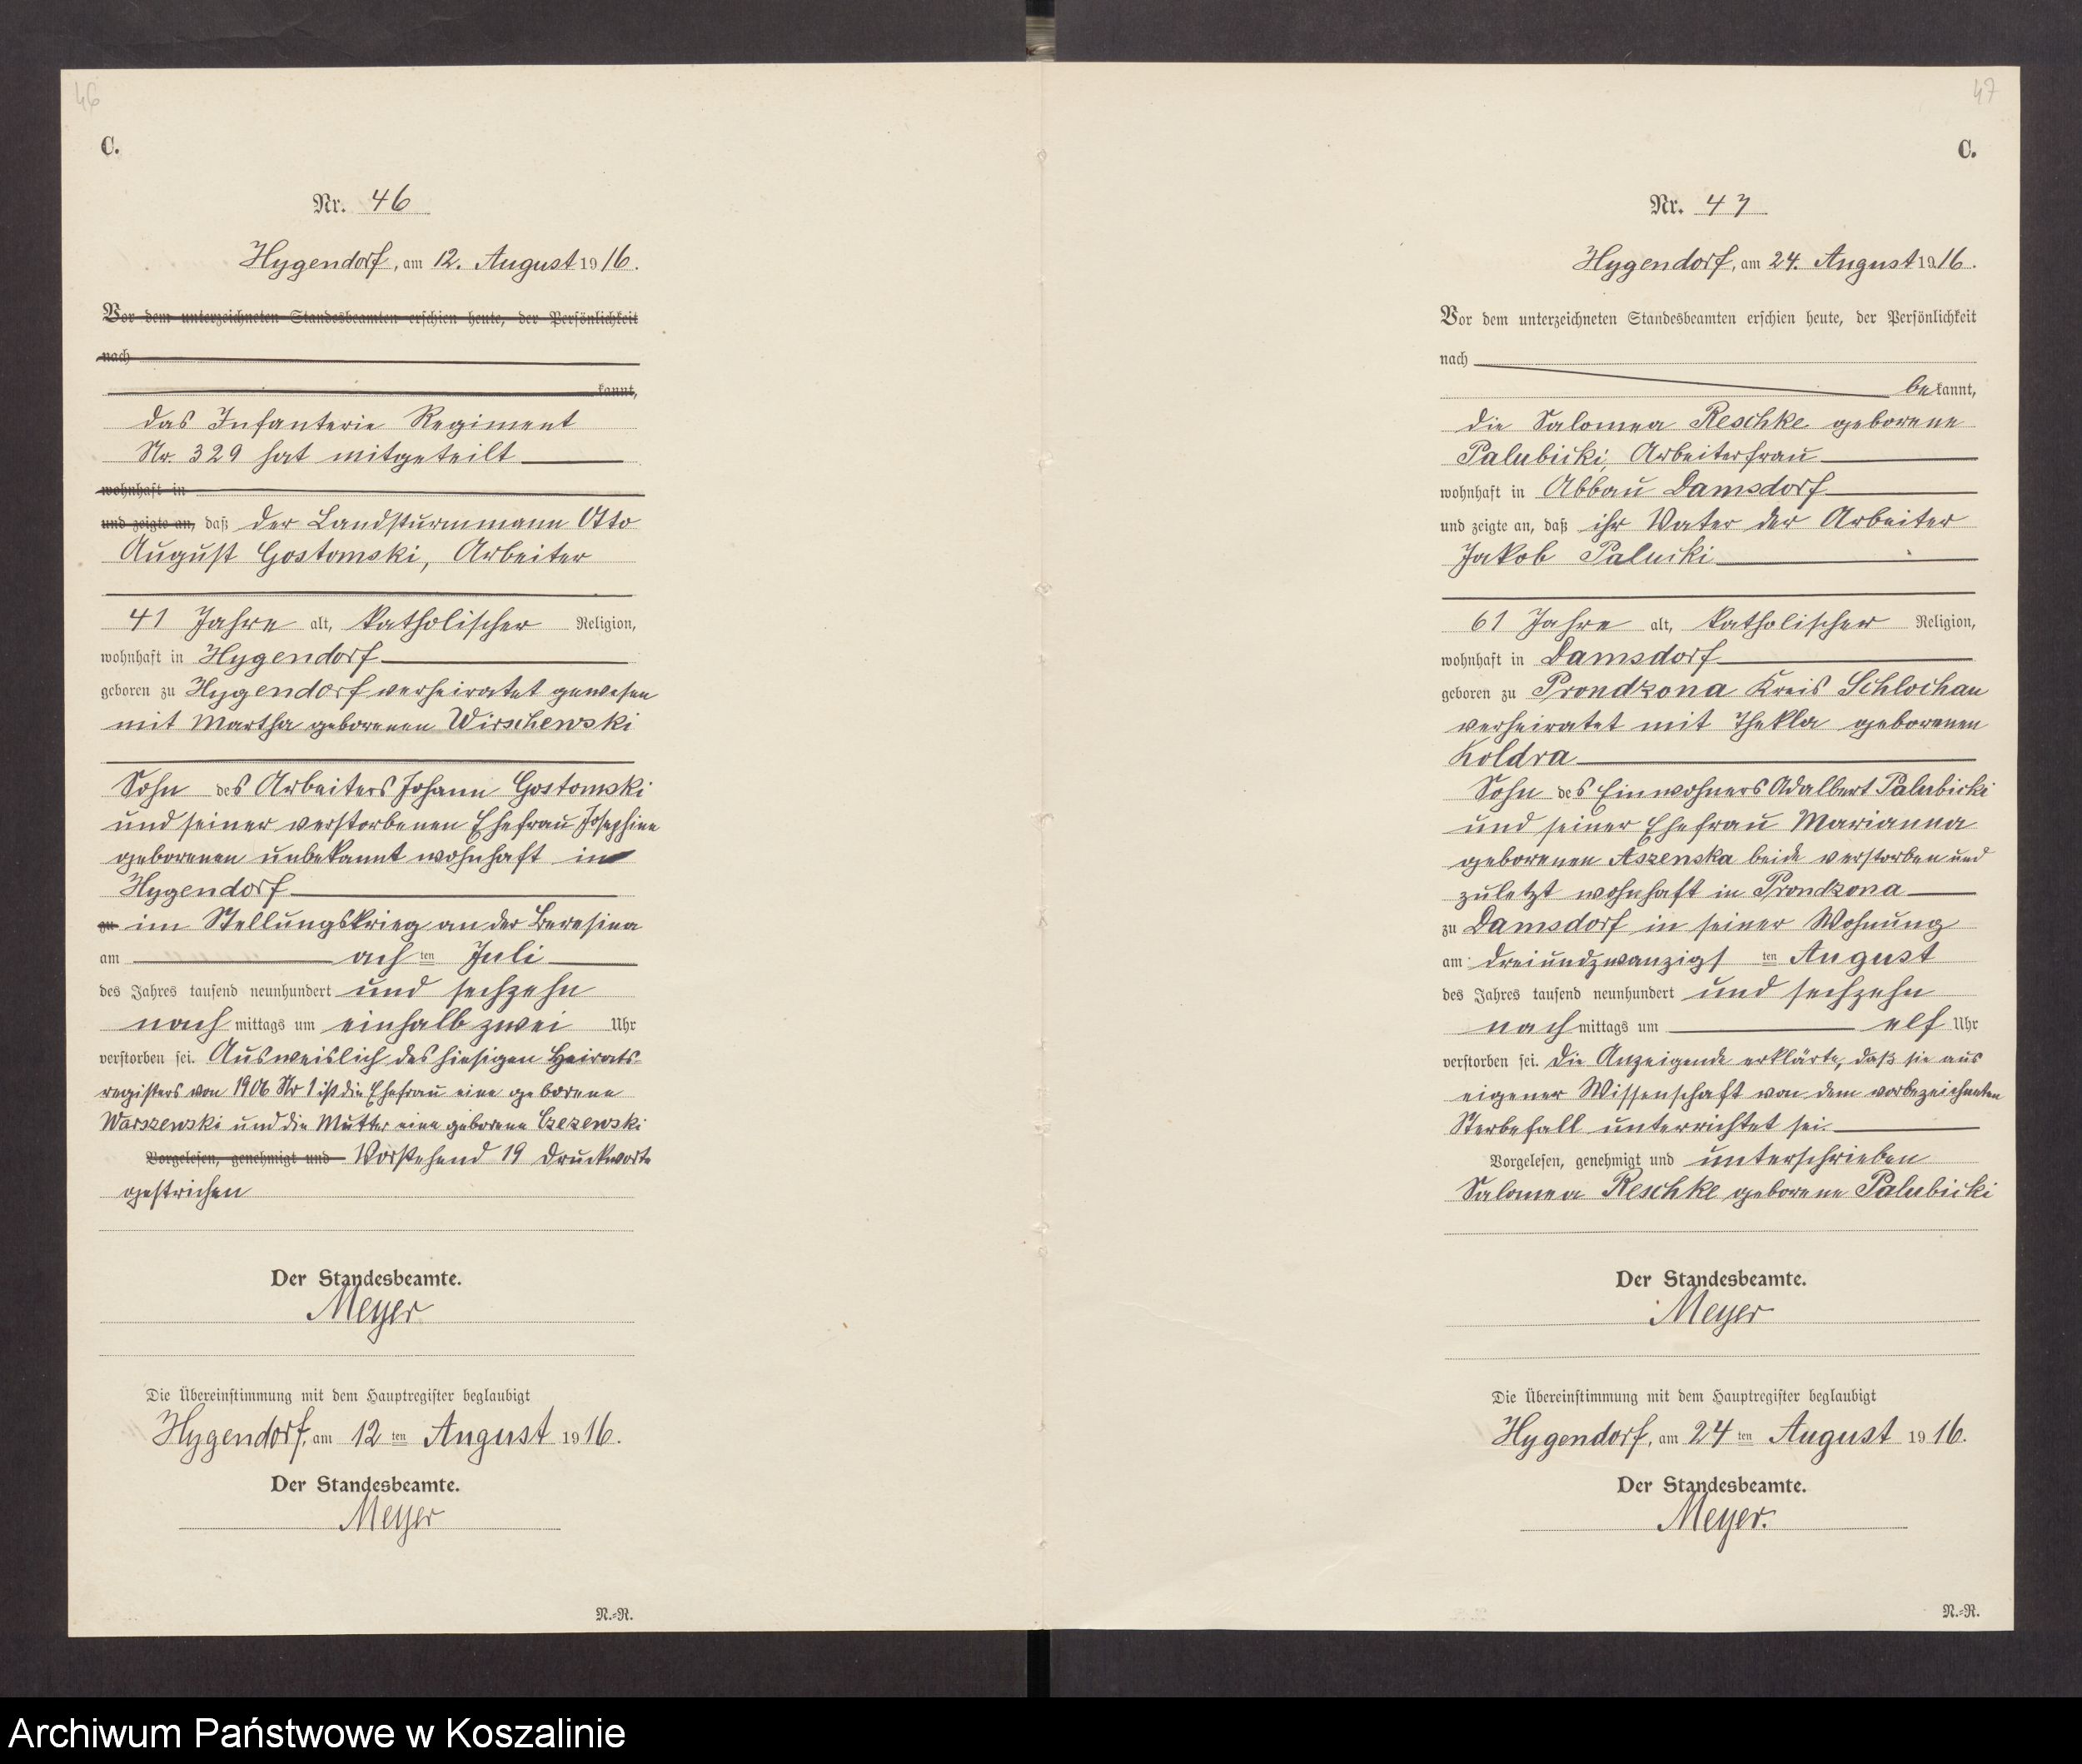 46
C.
Nr. 46
Hygendorf, am 12. August 1916.
Vor dem unterzeichneten Standesbeamten erschien heute, der Persönlichkeit
nach
kannt,
das Infanterie Regiment
Nr. 329 hat mitgeteilt
wohnhaft in
und zeigte an, daß der Landsturmmann Otto
August Gostomski, Arbeiter
41 Jahre alt, katholischer Religion,
wohnhaft in Hygendorf
geboren zu Hygendorf verheiratet gewesen
mit Martha geborenen Wirschewski
Sohn des Arbeiters Johann Gostomski
und seiner verstorbenen Ehefrau Josephine
geborenen unbekannt wohnhaft in
Hygendorf
zu im Stellungskrieg an der Beresina
am ach ten Juli
des Jahres tausend neunhundert und sechzehn
nach mittags um einhalb zwei Uhr
verstorben sei. Ausweislich des hiesigen Heirats-
registers von 1906 Nr 1 ist die Ehefrau eine geborene
Warszewski und die Mutter eine geborene Czezewski
Vorgelesen, genehmigt und Vorstehend 19 Druckworte
gestrichen
Der Standesbeamte.
Meyer
Die Übereinstimmung mit dem Hauptregister beglaubigt
Hygendorf, am 12 ten August 1916.
Der Standesbeamte.
Meyer
N.-R.
47
C.
Nr. 47
Hygendorf, am 24. August 1916.
Vor dem unterzeichneten Standesbeamten erschien heute, der Persönlichkeit
nach
bekannt,
die Salomea Reschke geborene
Palubicki, Arbeiterfrau
wohnhaft in Abbau Damsdorf
und zeigte an, daß ihr Vater der Arbeiter
Jakob Paluicki
61 Jahre alt, katholischer Religion,
wohnhaft in Damsdorf
geboren zu Prondzona Kreis Schlochau
verheiratet mit Thekla geborenen
Koldra
Sohn des Einwohners Adalbert Palubicki
und seiner Ehefrau Marianna
geborenen Aszenska beide verstorben und
zuletzt wohnhaft in Prondzona
zu Damsdorf in seiner Wohnung
am dreiundzwanzigs ten August
des Jahres tausend neunhundert und sechzehn
nach mittags um elf Uhr
verstorben sei. Die Anzeigende erklärte, daß sie aus
eigener Wissenschaft von dem vorbezeichneten
Sterbefall unterrichtet sei.
Vorgelesen, genehmigt und unterschrieben
Salomea Reschke geborene Palubicki
Der Standesbeamte.
Meyer
Die Übereinstimmung mit dem Hauptregister beglaubigt
Hygendorf, am 24 ten August 1916.
Der Standesbeamte.
Meyer.
N.-R.
Archiwum Państwowe w Koszalinie